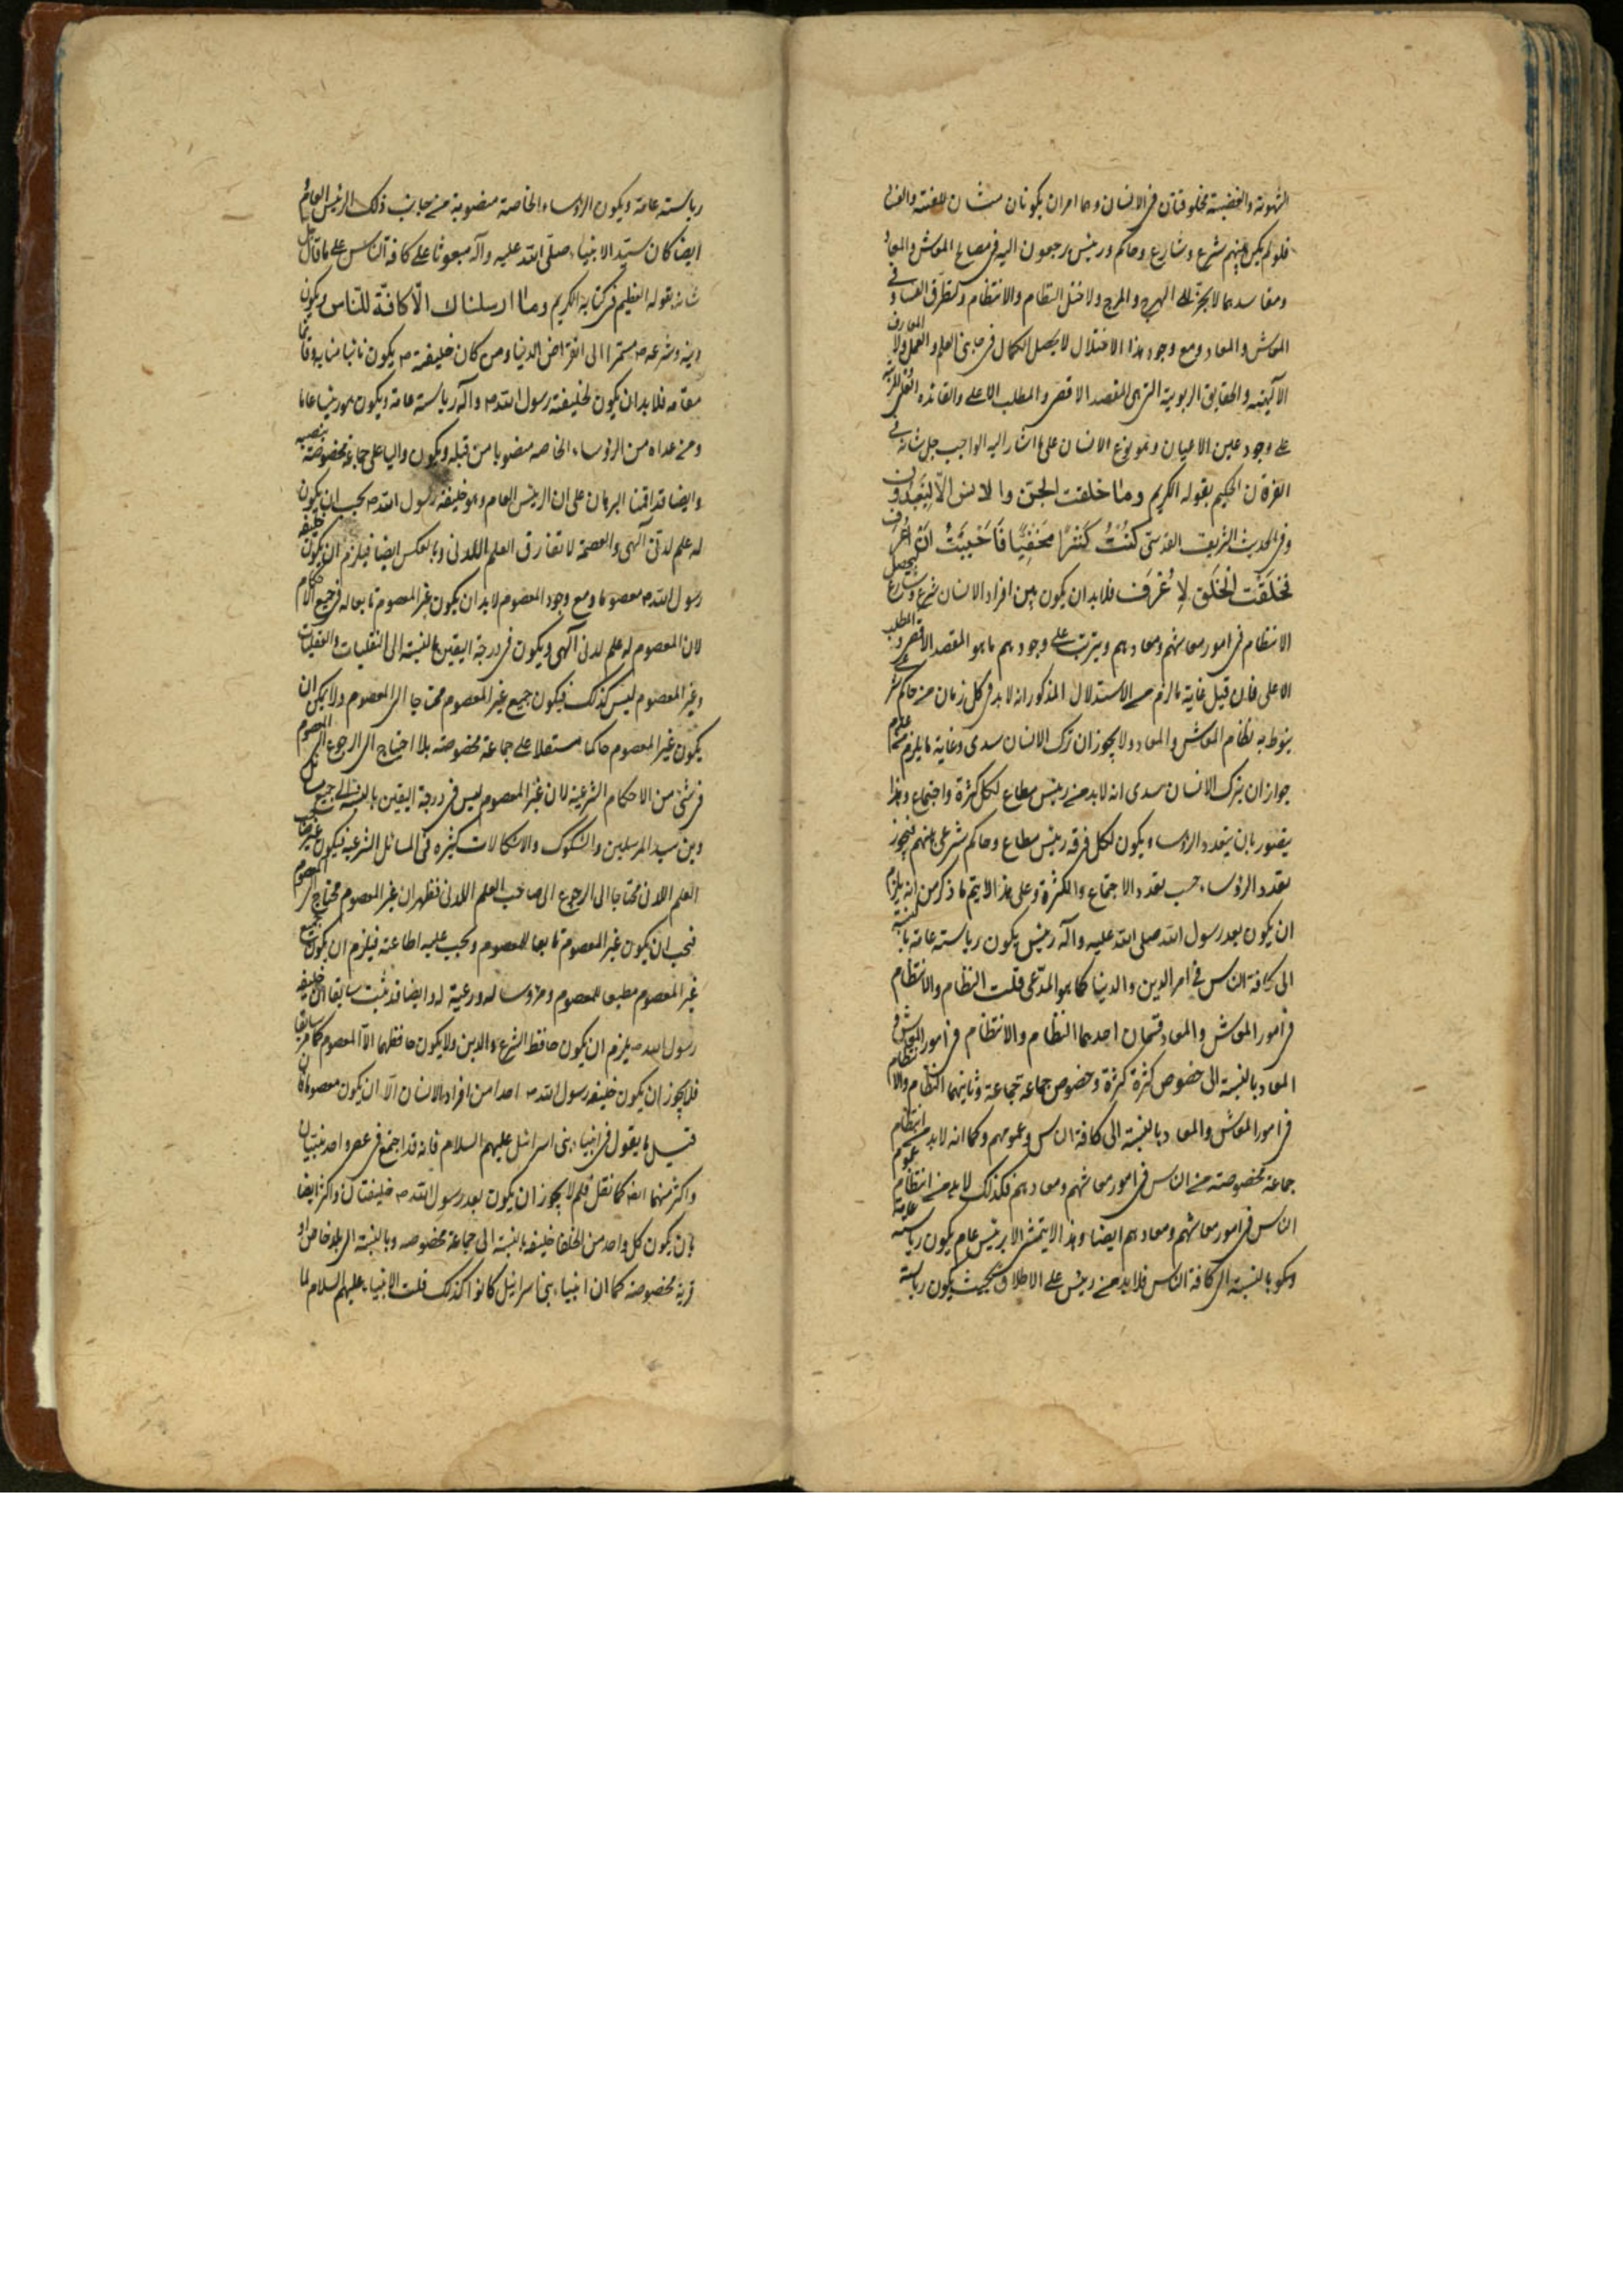 الشهوية والغضبية مخلوقتان فى الانسان وهما امران يكونان منشأن للفتنة والفساد
فلو لم يكن بينهم شرع وشارع وحاكم ورئيس يرجعون اليه فى مصالح المعاش والمعاد
ومفاسدهما لانجر الى الهرج والمرج ولاختل النظام والانتظام ولتطرق الفساد فى
المعاش والمعاد ومع وجود هذا الاختلال لا يحصل الكمال فى جانبى العلم والعمل ولا المعارف
الآلهية والحقايق الربوبية التى هى المقصد الاقصى والمطلب الاعلى والفائدة العظمى المترتبة
على وجود عين الاعيان وهو نوع الانسان على ما اشار اليه الواجب جل شانه فى
القرآن الحكيم بقوله الكريم وما خلقت الجن والانس الا ليعبدون
وفى الحديث الشريف القدسى كنت كنزا مخفيا فاحببت ان اعرف
فخلقت الخلق لاعرف فلابد ان يكون بين افراد الانسان شرع وشارع ليحصل
الانتظام فى امور معاشهم ومعادهم ويترتب على وجودهم ما هو المقصد الاقصى والمطلب
الاعلى فان قيل غاية ما لزم من الاستدلال المذكور انه لابد فى كل زمان من حاكم شرعى
ينوط به نظام المعاش والمعاد ولا يجوز ان ترك الانسان سدى وغاية ما يلزم من عدم
جواز ان يترك الانسان سدى انه لابد من رئيس مطاع لكل كثرة واجتماع وهذا
يتصور بان يتعدد الرؤساء ويكون لكل فرقة رئيس مطاع وحاكم شرعى بينهم فيجوز
تعدد الرؤساء حسب تعدد الاجتماع والكثرة وعلى هذا لا يتم ما ذكر من انه يلزم
ان يكون بعد رسول الله صلى الله عليه وآله رئيس يكون رياسته عامة بالنسبة
الى كافة الناس فى امر الدين والدنيا كما هو المدعى قلت النظام والانتظام
فى امور المعاش والمعاد قسمان احدهما النظام والانتظام فى امور المعاش و
المعاد بالنسبة الى خصوص كثرة كثرة وخصوص جماعة جماعة وثانيهما النظام والانتظام
فى امور المعاش والمعاد بالنسبة الى كافة الناس وعمومهم وكما انه لابد من انتظام
جماعة مخصوصة من الناس فى امور معاشهم ومعادهم فكذلك لابد من انتظام عموم
الناس فى امور معاشهم ومعادهم ايضا وهذا لا يتمشى الا برئيس عام يكون رياسته عامة
بالنسبة الى كافة الناس فلابد من رئيس على الاطلاق بحيث يكون رياسته
رياسته عامة ويكون الرؤساء الخاصة منصوبة من جانب ذلك الرئيس العام و
ايضا كان سيد الانبياء صلى الله عليه وآله مبعوثا على كافة الناس على ما قال جل
شانه بقوله العظيم فى كتابه الكريم وما ارسلناك الا كافة للناس ويكون
دينه وشرعه ص مستمرا الى انقراض الدنيا ومن كان خليفته ص يكون نائبا منابه وقائما
مقامه فلابد ان يكون لخليفة رسول الله ص وآله رياسته عامة ويكون هو رئيسا عاما
ومن عداه من الرؤساء الخاصه منصوبا من قبله ويكون واليا على جماعة مخصوصة بنصبه
وايضا قد اقمنا البرهان على ان الرئيس العام وهو خليفة رسول الله ص يجب ان يكون
له علم لدنى آلهى والعصمة لا تفارق العلم اللدنى وبالعكس ايضا فيلزم ان يكون خليفة
رسول الله ص معصوما ومع وجود المعصوم لابد ان يكون غير المعصوم تابعا له فى جميع الاحكام
لان المعصوم له علم لدنى آلهى ويكون فى درجة اليقين بالنسبة الى النقليات والعقليات
وغير المعصوم ليس كذلك فيكون جميع غير المعصوم محتاجا الى المعصوم ولا يمكن ان
يكون غير المعصوم حاكما مستقلا على جماعة مخصوصة بلا احتياج الى الرجوع الى المعصوم
فى شئ من الاحكام الشرعية لان غير المعصوم ليس فى درجة اليقين بالنسبة الى جميع مسائل
دين سيد المرسلين والشكوك والاشكالات كثيرة فى المسائل الشرعية فيكون غير صاحب
العلم اللدنى محتاجا الى الرجوع الى صاحب العلم اللدنى فظهر ان غير المعصوم محتاج الى المعصوم
فيجب ان يكون غير المعصوم تابعا للمعصوم ويجب عليه اطاعته فيلزم ان يكون جميع
غير المعصوم مطيعا للمعصوم ومرؤسا له ورعية له وايضا قد ثبت سابقا ان خليفة
رسول الله ص يلزم ان يكون حافظ الشرع والدين ولا يكون حافظهما الا المعصوم كما مر سابقا
فلا يجوز ان يكون خليفة رسول الله ص احدا من افراد الانسان الا ان يكون معصوما فان
قيل ما يقول فى انبياء بنى اسرائيل عليهم السلام فانه قد اجتمع فى عصر واحد نبيان
واكثر منهما ايضا كما نقل فلم لا يجوز ان يكون بعد رسول الله ص خليفتان واكثر ايضا
بان يكون كل واحد من الخلفا خليفة بالنسبة الى جماعة مخصوصه وبالنسبة الى بلد خاص او
قرية مخصوصة كما ان انبياء بنى اسرائيل كانوا كذلك قلت الانبياء عليهم السلام لما